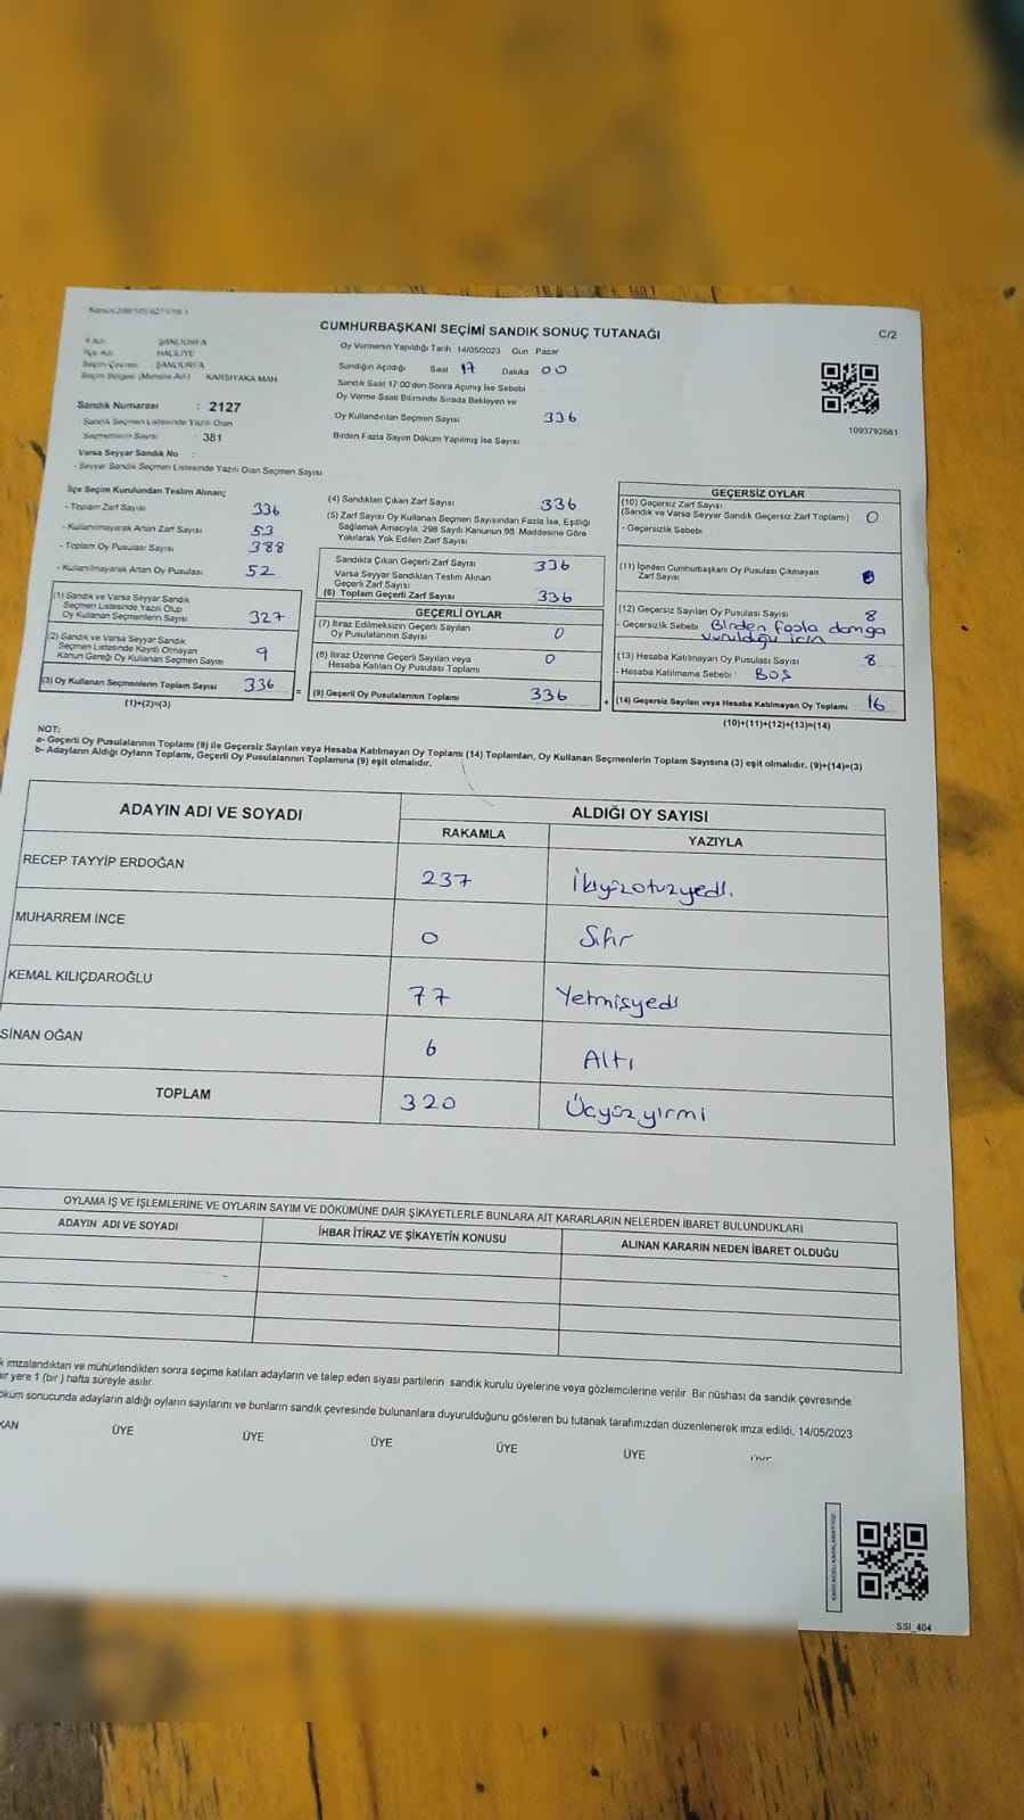 CUMHURBAŞKANI SEÇİMİ SANDIK SONUÇ TUTANAĞI
C/2
Oy Vermenin Yapıldığı Tarih 14/05/2023 Gün Pazar
İlçe Adı HALİLİYE
Seçim Çevresi ŞANLIURFA
KARŞIYAKA MAH
Sandığın Açıldığı Saat 17 Dakika 00
Sandık Saat 17:00'den Sonra Açılmış İse Sebebi
Oy Verme Saati Bitiminde Sırada Bekleyen ve
Oy Kullandırılan Seçmen Sayısı 336
Birden Fazla Sayım Döküm Yapılmış İse Sayısı
1093792681
Sandık Numarası : 2127
Sandık Seçmen Listesinde Yazılı Olan
Seçmenlerin Sayısı 381
Varsa Seyyar Sandık No :
- Seyyar Sandık Seçmen Listesinde Yazılı Olan Seçmen Sayısı
İlçe Seçim Kurulundan Teslim Alınan;
- Toplam Zarf Sayısı 336
- Kullanılmayarak Artan Zarf Sayısı 53
- Toplam Oy Pusulası Sayısı 388
- Kullanılmayarak Artan Oy Pusulası 52
(1) Sandık ve Varsa Seyyar Sandık
Seçmen Listesinde Yazılı Olup
Oy Kullanan Seçmenlerin Sayısı 327
(2) Sandık ve Varsa Seyyar Sandık
Seçmen Listesinde Kayıtlı Olmayan
Kanun Gereği Oy Kullanan Seçmen Sayısı 9
(3) Oy Kullanan Seçmenlerin Toplam Sayısı 336
(1)+(2)=(3)
(4) Sandıktan Çıkan Zarf Sayısı 336
(5) Zarf Sayısı Oy Kullanan Seçmen Sayısından Fazla İse, Eşitliği
Sağlamak Amacıyla, 298 Sayılı Kanunun 98. Maddesine Göre
Yakılarak Yok Edilen Zarf Sayısı
Sandıkta Çıkan Geçerli Zarf Sayısı 336
Varsa Seyyar Sandıktan Teslim Alınan
Geçerli Zarf Sayısı
(6) Toplam Geçerli Zarf Sayısı 336
GEÇERLİ OYLAR
(7) İtiraz Edilmeksizin Geçerli Sayılan
Oy Pusulalarının Sayısı 0
(8) İtiraz Üzerine Geçerli Sayılan veya
Hesaba Katılan Oy Pusulası Toplamı 0
= (9) Geçerli Oy Pusulalarının Toplamı 336
GEÇERSİZ OYLAR
(10) Geçersiz Zarf Sayısı
(Sandık ve Varsa Seyyar Sandık Geçersiz Zarf Toplamı) 0
- Geçersizlik Sebebi
(11) İçinden Cumhurbaşkanı Oy Pusulası Çıkmayan
Zarf Sayısı 0
(12) Geçersiz Sayılan Oy Pusulası Sayısı 8
- Geçersizlik Sebebi Birden fazla damga
vurulduğu için
(13) Hesaba Katılmayan Oy Pusulası Sayısı 8
- Hesaba Katılmama Sebebi : BOŞ
+ (14) Geçersiz Sayılan veya Hesaba Katılmayan Oy Toplamı 16
(10)+(11)+(12)+(13)=(14)
NOT:
a- Geçerli Oy Pusulalarının Toplamı (9) ile Geçersiz Sayılan veya Hesaba Katılmayan Oy Toplamı (14) Toplamları, Oy Kullanan Seçmenlerin Toplam Sayısına (3) eşit olmalıdır. (9)+(14)=(3)
b- Adayların Aldığı Oyların Toplamı, Geçerli Oy Pusulalarının Toplamına (9) eşit olmalıdır.
ADAYIN ADI VE SOYADI
ALDIĞI OY SAYISI
RAKAMLA YAZIYLA
RECEP TAYYİP ERDOĞAN 237 İkiyüzotuzyedi.
MUHARREM İNCE 0 Sıfır
KEMAL KILIÇDAROĞLU 77 Yetmişyedi
SİNAN OĞAN 6 Altı
TOPLAM 320 Üçyüzyirmi
OYLAMA İŞ VE İŞLEMLERİNE VE OYLARIN SAYIM VE DÖKÜMÜNE DAİR ŞİKAYETLERLE BUNLARA AİT KARARLARIN NELERDEN İBARET BULUNDUKLARI
ADAYIN ADI VE SOYADI İHBAR İTİRAZ VE ŞİKAYETİN KONUSU ALINAN KARARIN NEDEN İBARET OLDUĞU
imzalandıktan ve mühürlendikten sonra seçime katılan adayların ve talep eden siyasi partilerin sandık kurulu üyelerine veya gözlemcilerine verilir. Bir nüshası da sandık çevresinde
yere 1 (bir) hafta süreyle asılır.
sonucunda adayların aldığı oyların sayılarını ve bunların sandık çevresinde bulunanlara duyurulduğunu gösteren bu tutanak tarafımızdan düzenlenerek imza edildi. 14/05/2023
KAN ÜYE ÜYE ÜYE ÜYE ÜYE
SSI_404